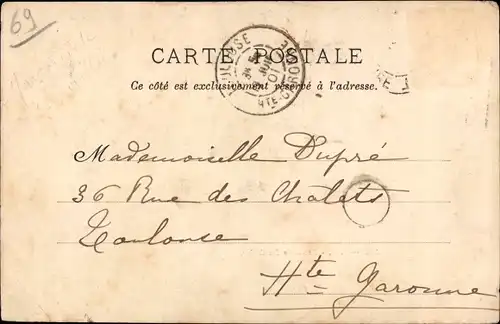 69
TOULOUSE
HTE-GARONNE
CARTE POSTALE
Ce côté est exclusivement réservé à l'adresse.
Mademoiselle Dupré
36 Rue des Chalets
Toulouse
Hte Garonne